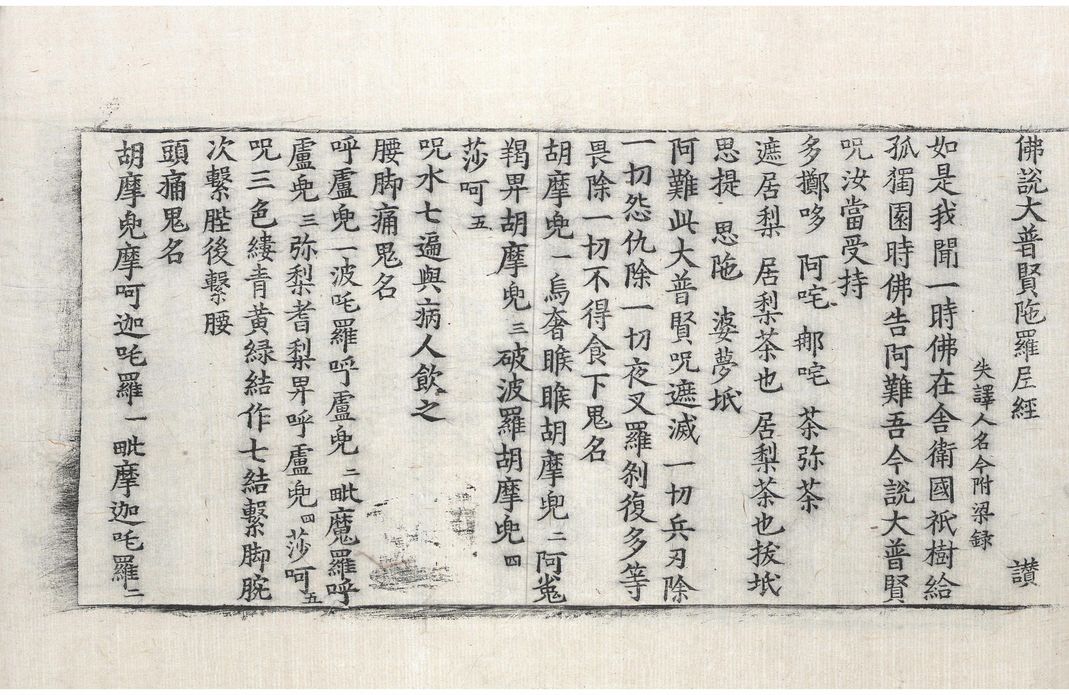 佛說大普賢陁羅尼經 讃
失譯人名今附梁録
如是我聞一時佛在舎衛國祇樹給
孤獨園時佛告阿難吾今說大普賢
呪汝當受持
多擲哆 阿咤 那咤 茶弥茶
遮居梨 居梨茶也 居梨茶也拔坻
思提 思陁 婆夢坻
阿難此大普賢呪遮滅一切兵刃除
一切怨仇除一切夜叉羅刹復多等
畏除一切不得食下鬼名
胡摩兜一烏奢睺睺胡摩兜二阿㝹
羯畀胡摩兜三破波羅胡摩兜四
莎呵五
呪水七遍與病人飲之
腰脚痛鬼名
呼盧兜一波吒羅呼盧兜二毗魔羅呼
盧兜三弥梨耆梨畀呼盧兜四莎呵五
呪三色縷青黄緑結作七結繫脚腕
次繫䏶後繫腰
頭痛鬼名
胡摩兜摩呵迦吒羅一毗摩迦吒羅二